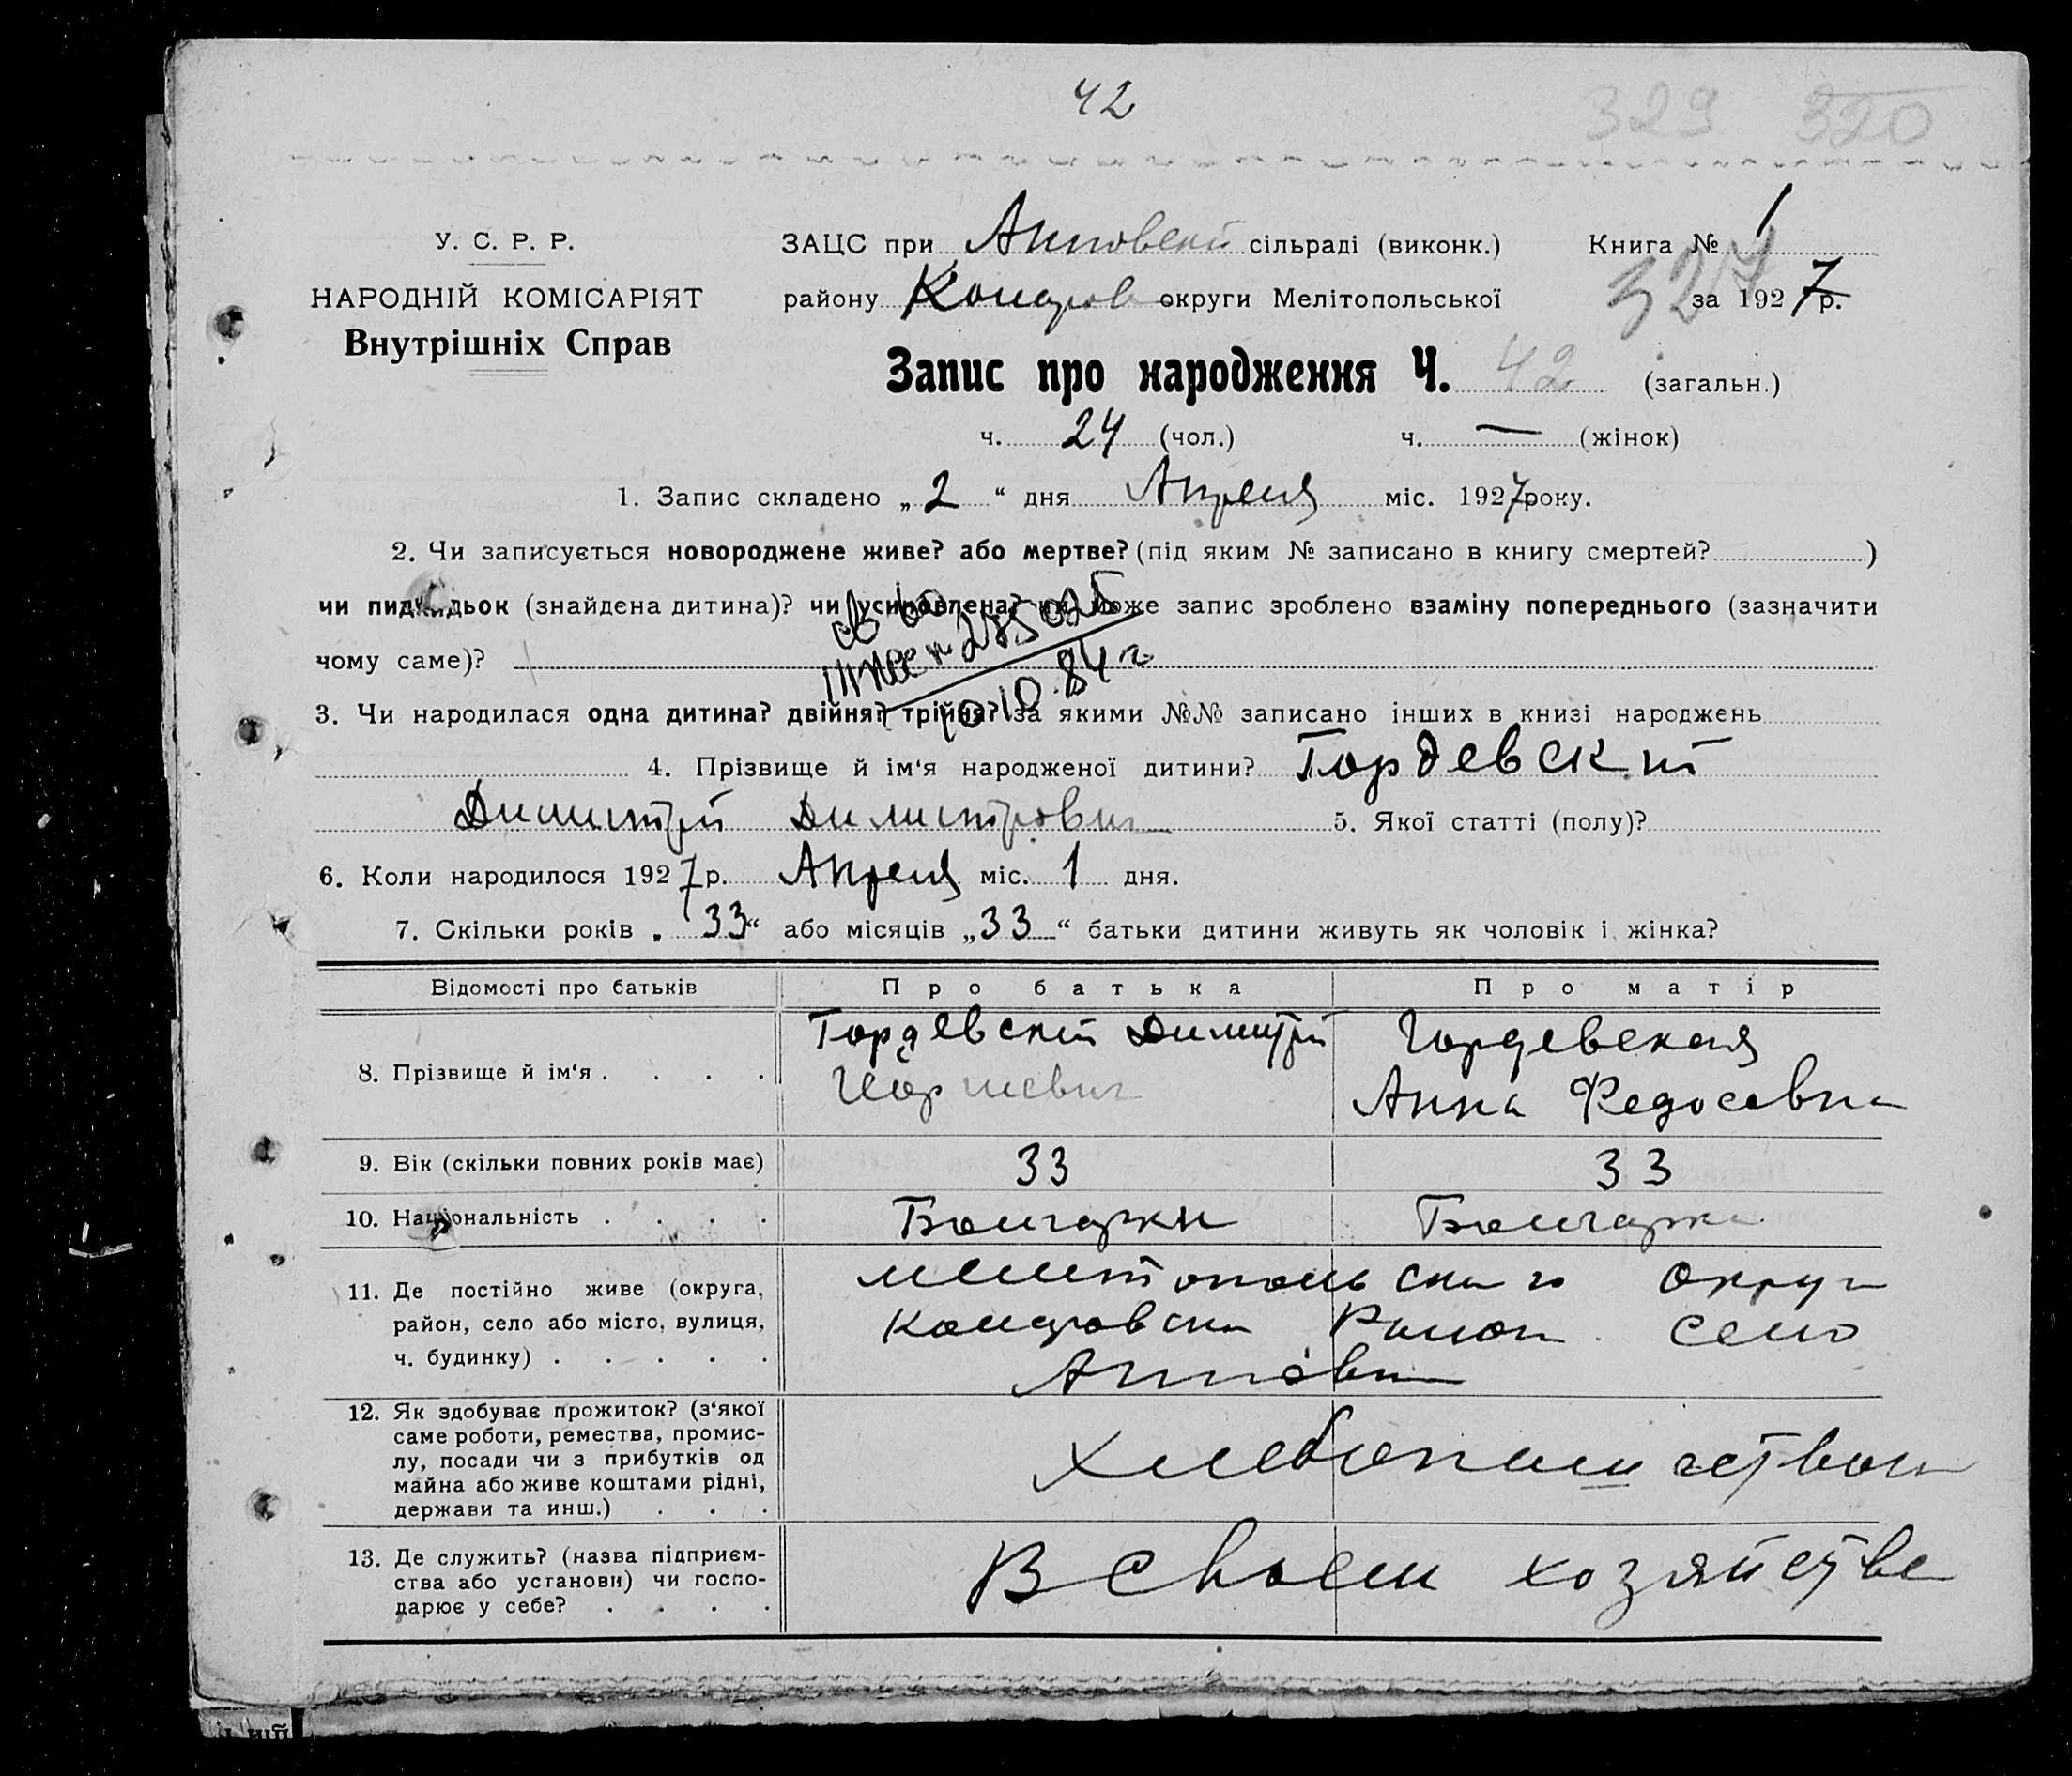 42
329 320
У. С. Р. Р.
НАРОДНІЙ КОМІСАРІЯТ
Внутрішніх Справ
ЗАЦС при Анновский сільраді (виконк.) Книга № 1
району Коларов округи Мелітопольської за 1927 р.
327
Запис про народження Ч. 42 (загальн.)
ч. 24 (чол.) ч. — (жінок)
1. Запис складено „2“ дня Апреля міс. 1927 року.
2. Чи записується новороджене живе? або мертве? (під яким № записано в книгу смертей? )
чи пидкидьок (знайдена дитина)? чи усиновлена? чи може запис зроблено взаміну попереднього (зазначити
чому саме)?
10.10.84 г
3. Чи народилася одна дитина? двійня? трійня? за якими №№ записано інших в книзі народжень
4. Прізвище й ім‘я народженої дитини? Гордевский
Димитрий Димитрович 5. Якої статті (полу)?
6. Коли народилося 1927 р. Апреля міс. 1 дня.
7. Скільки років „33“ або місяців „33“ батьки дитини живуть як чоловік і жінка?
Відомості про батьків Про батька Про матір
8. Прізвище й ім‘я . . . . Гордевский Димитрий Гордевская
Анна Федосовна
9. Вік (скільки повних років має) 33 33
10. Національність . . . . Болгарин Болгарка
11. Де постійно живе (округа, район, село або місто, вулиця, ч. будинку) . . . . .
Мелитопольскаго Округа
Коларовска Района Село
Анновка
12. Як здобуває прожиток? (з‘якої
саме роботи, ремества, промис-
лу, посади чи з прибутків од
майна або живе коштами рідні,
держави та инш.) . . .
Хлебопашеством
13. Де служить? (назва підприєм-
ства або установи) чи госпо-
дарює у себе? . . . .
В своем хозяйстве